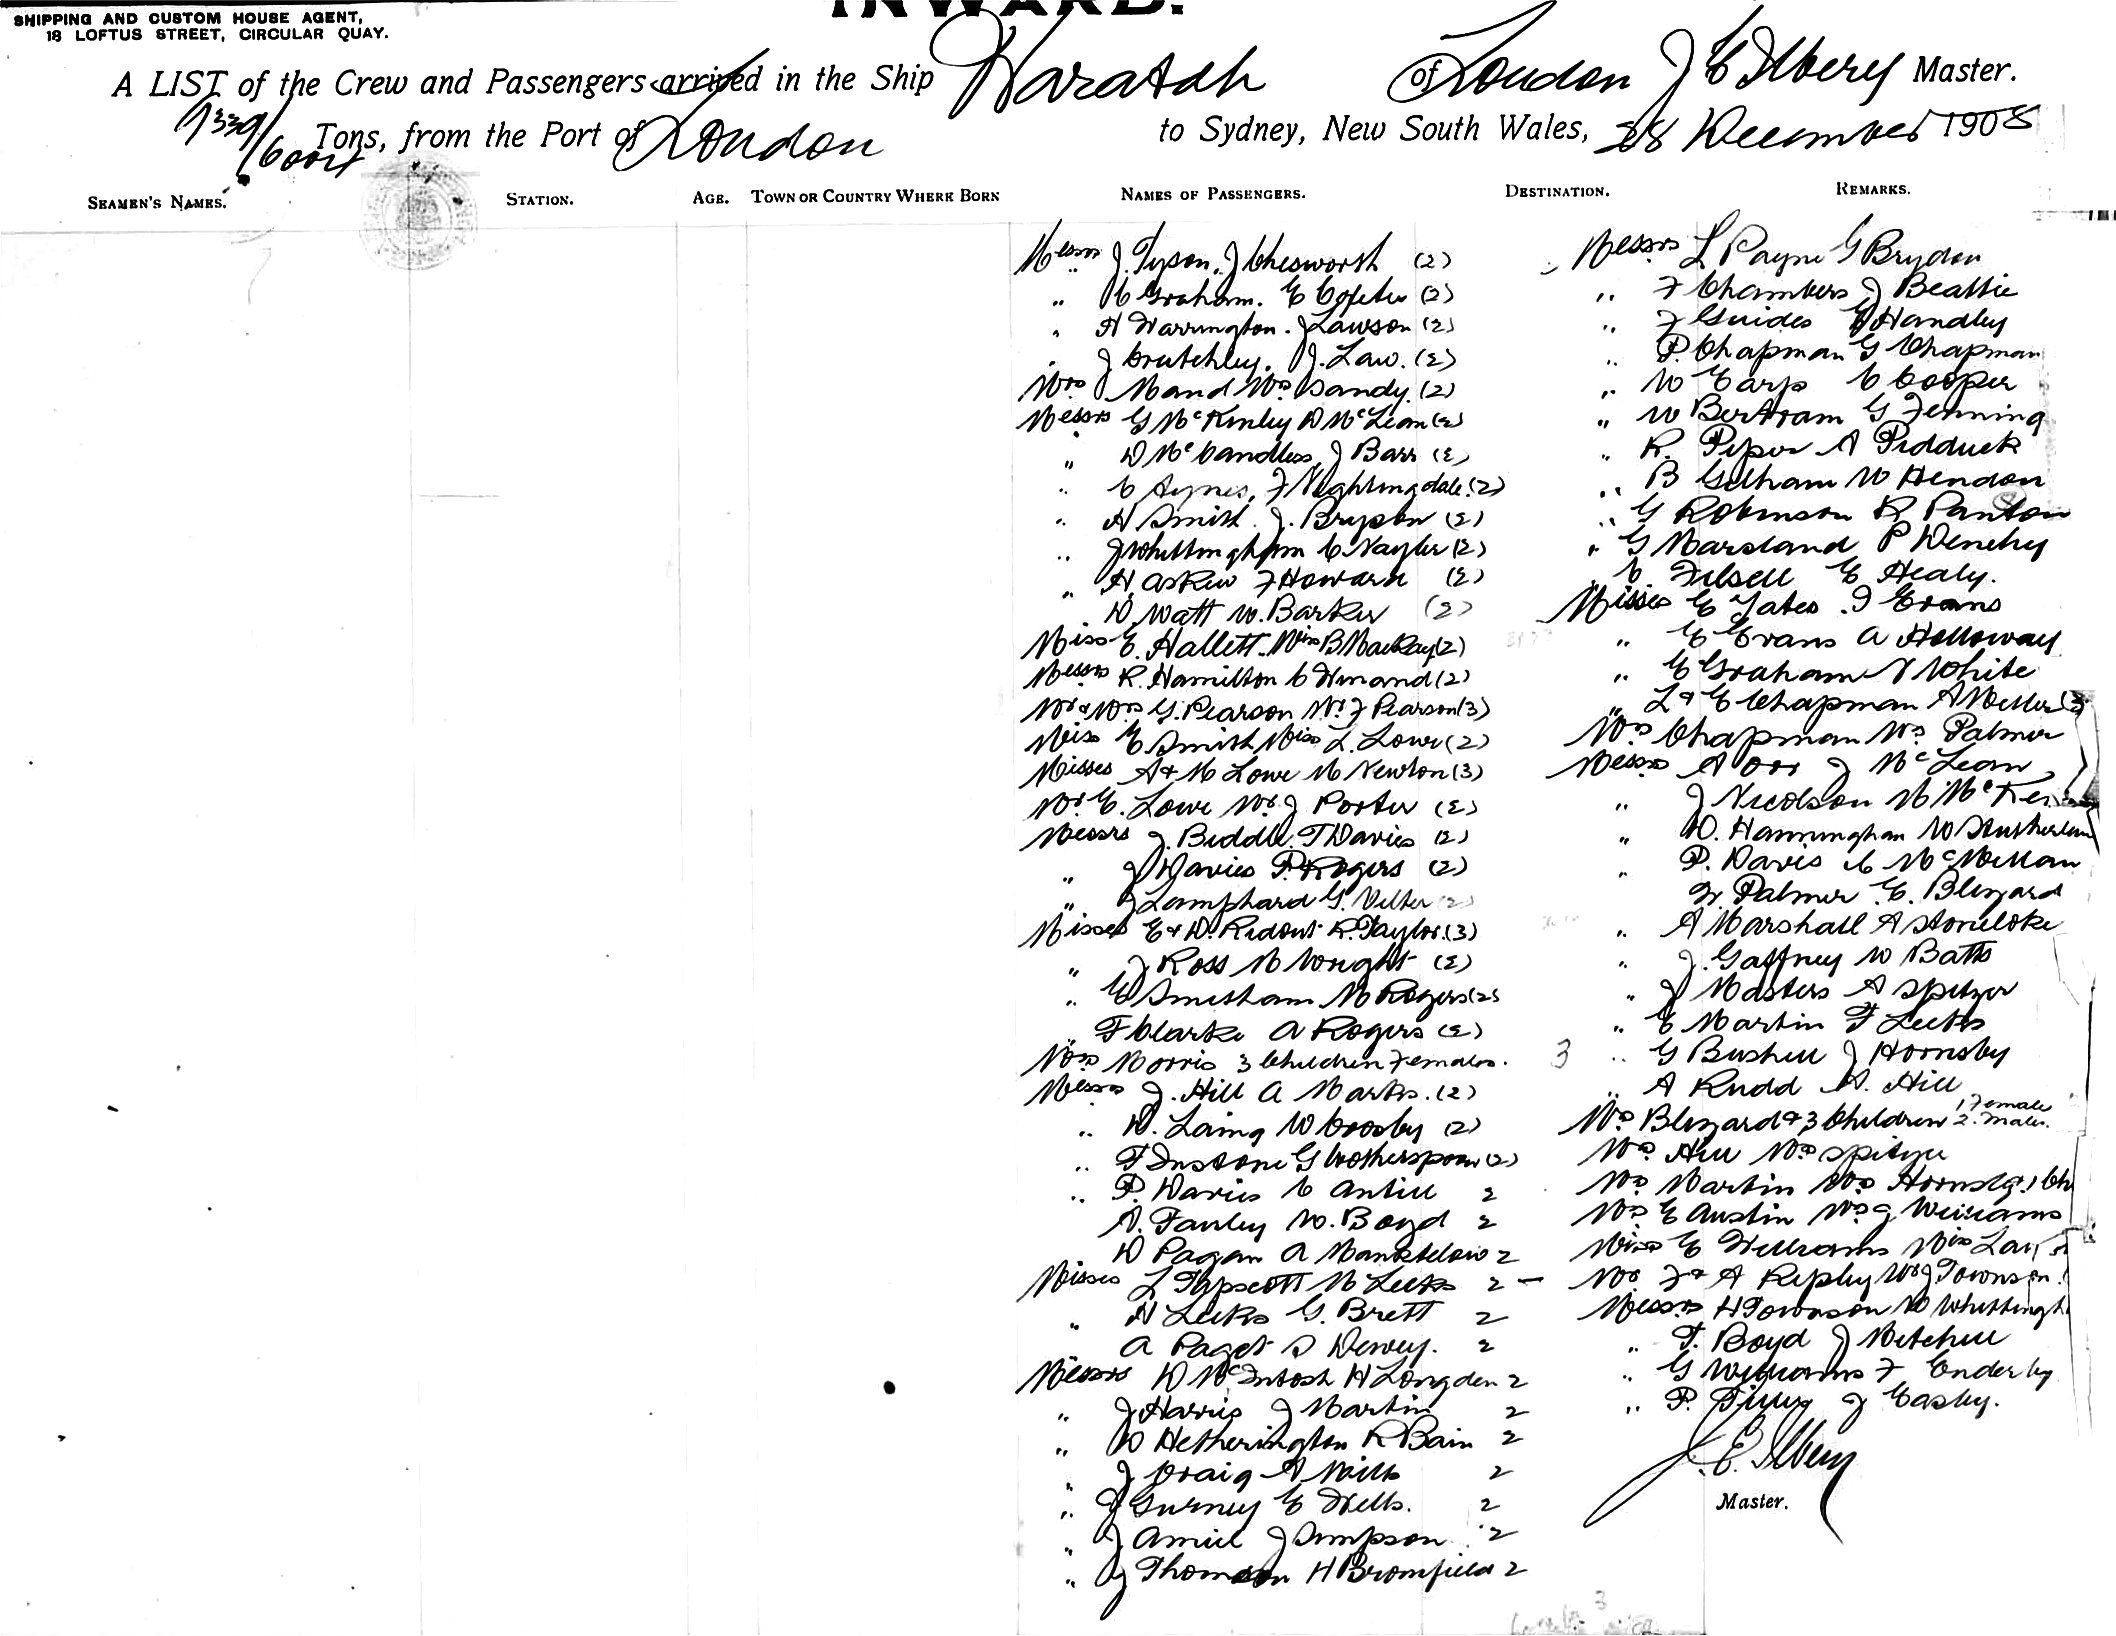 INWARD.
SHIPPING AND CUSTOM HOUSE AGENT,
18 LOFTUS STREET, CIRCULAR QUAY.
A LIST of the Crew and Passengers arrived in the Ship Waratah of London J E Ilbery Master.
Tons, from the Port of London to Sydney, New South Wales, 28 December 1908
SEAMEN'S NAMES. STATION. AGE. TOWN OR COUNTRY WHERE BORN NAMES OF PASSENGERS. DESTINATION. REMARKS.
Messrs J. Tyson. J Chesworth (2)
" C Graham. E (2)
" H Warrington. J Lawson (2)
" J Crutchley. J. Law. (2)
Mrs M and Ms Sandy. (2)
Messrs G McKinley D McLean (2)
" D McCandless J Barr (2)
" C F Nightingdale. (2)
" H Smith. J. Bryson (2)
" J Whittingham C Nayler (2)
" H. Askew F Howard (2)
D. Watt W. Barker (2)
Miss E. Hallett. Miss B MacKay (2)
Messrs R. Hamilton C (2)
Mr & Mrs G. Pearson Mr. F Pearson (3)
Miss E Smith Miss L. Lowe (2)
Misses A & M Lowe M Newton (3)
Mr E. Lowe Mr J Porter (2)
Messrs J. Biddle. T Davies (2)
" J Davies P. Rogers (2)
" J Lamphard G. (2)
Misses E & D. Ridout R. Taylor. (3)
" J Ross M Wright (2)
" E Smitham M Rogers (2)
" F Clarke A Rogers (2)
Mrs Morris 3 Children Females. 3
Messrs J. Hill A Marks. (2)
" D. Laing W Crosby (2)
" F Instone G Wotherspoon (2)
" P. Davies C Antill 2
Fauley W. Boyd 2
D Pagan A Manktelow 2
Misses L Tapscott M Leeks 2 -
" H Leeks G. Brett 2
A Paget S Dewey. 2
Messrs D McIntosh H Longden 2
" J Harris J Martin 2
" D Hetherington R Bain 2
" J Craig A Mills 2
" J Gurney E Wells. 2
" J J Simpson 2
" J Thomson H Bromfield 2
Messrs L Payne G Brydon
" F Chambers J Beattie
" F Guides Handley
" P. Chapman G Chapman
" W Earp C Cooper
" W Bertram G Fenning
" R. Piper A Pidduck
" B Gelham W Hendon
" G Robinson R Panton
" G Marsland P Denehy
" C. Filsell E Healy.
Misses E Yates. I Evans
" E Evans A Holloway
" E Graham White
" L & E Chapman A
Mrs Chapman Mrs Palmer
Messrs A Orr J McLean
" J Nicolson M
" D. Hanningham W
" P. Davis C McMillan
Palmer E. Blizard
" A Marshall A Stoneloke
" J. Gaffney W Batts
" J Masters A Spitzer
" E Martin F Leeks
" G Bushell J Hornsby
" A Rudd Hill
Mrs Blizard & 3 Children 1 Female 2. Males.
Mrs Hill Mrs Spitzer
Mrs Martin Mrs
Mrs E Austin Mrs J Williams
Miss E Williams Miss
Mr F & A Ripley Mr J Townson.
Messrs H Townson W
" T. Boyd J Mitchell
" G Williams F Enderby
" P. J Easby.
J. E. Ilbery
Master.